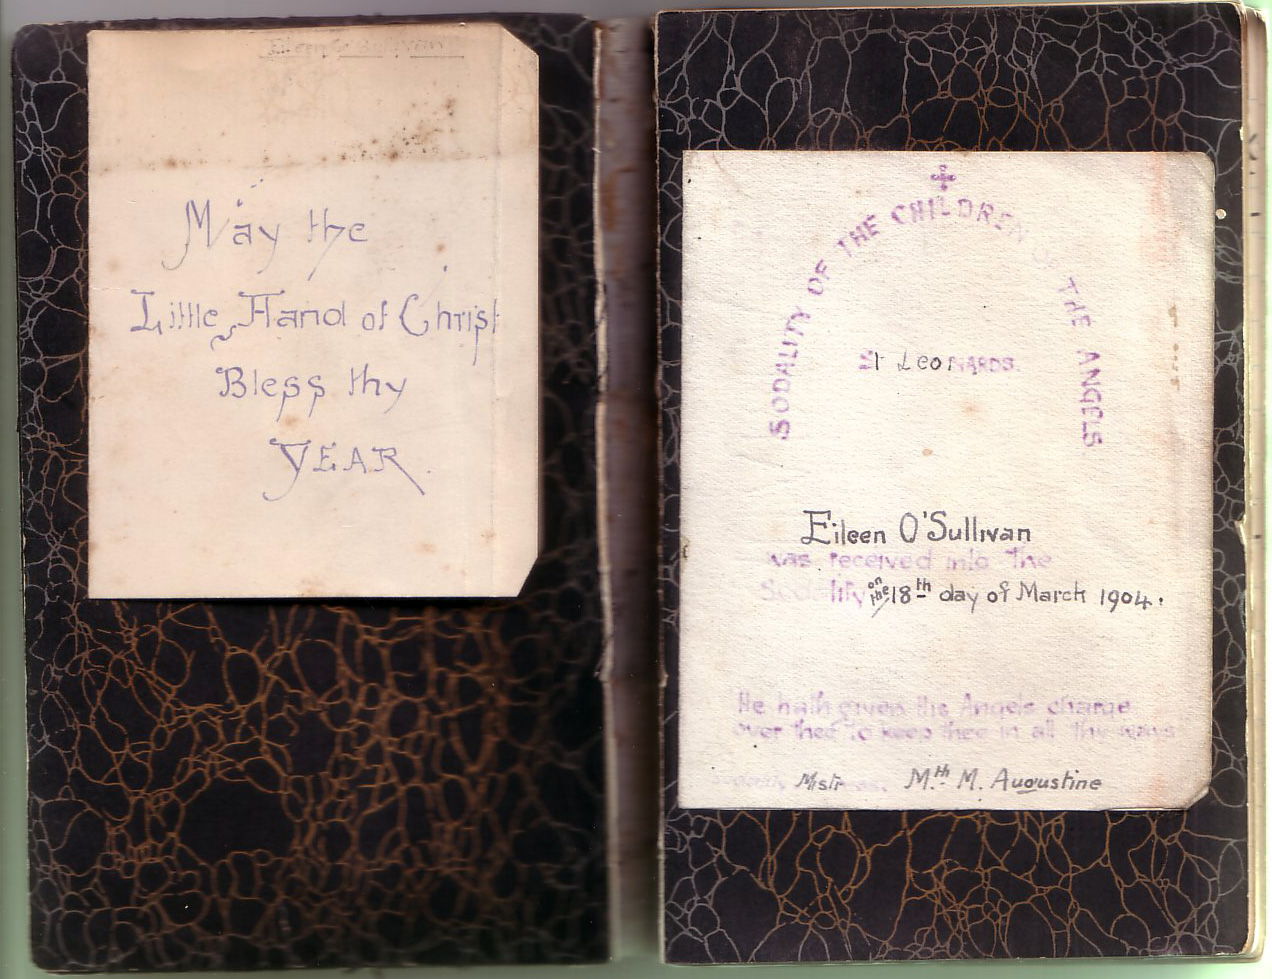 Eileen O'Sullivan
May the
Little Hand of Christ
Bless thy
YEAR.
SODALITY OF THE CHILDREN OF THE ANGELS
St Leonards.
Eileen O'Sullivan
was received into the
Sodality on the 18th day of March 1904.
He hath given His Angels charge
over thee to keep thee in all thy ways
Sodality Mistress. Mth M. Augustine